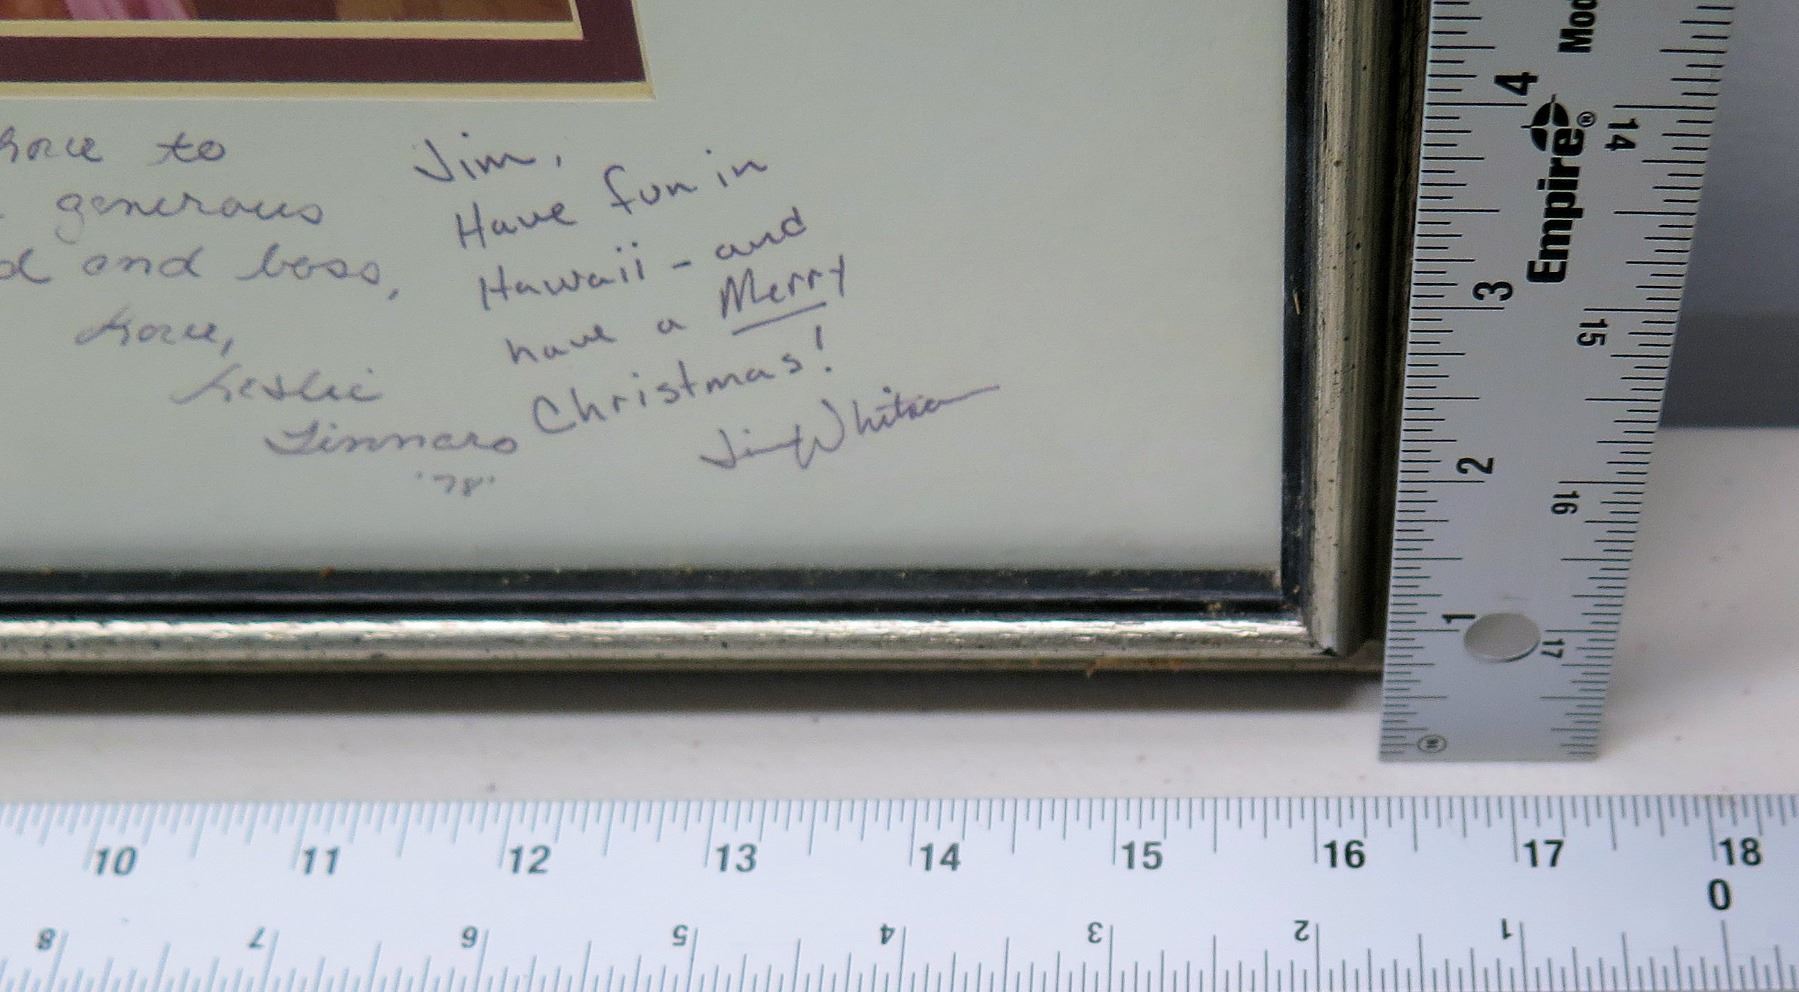 to
generous
and boss,
Love,
Leslie
'78'
Jim,
Have fun in
Hawaii - and
have a Merry
Christmas!
Jim
4
3
2
1
Empire®
14
15
16
17
10 11 12 13 14 15 16 17 18
0
8 7 6 5 4 3 2 1